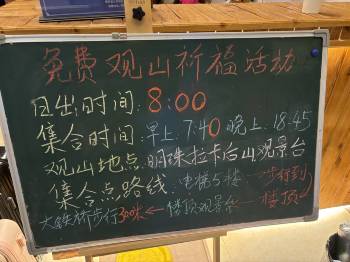 免费观山祈福活动
日出时间：8:00
集合时间：早上：7:40 晚上：18:45
观山地点：明珠拉卡后山观景台
集合点路线：电梯5楼 步行到
大铁桥步行300米←楼顶观景台←楼顶